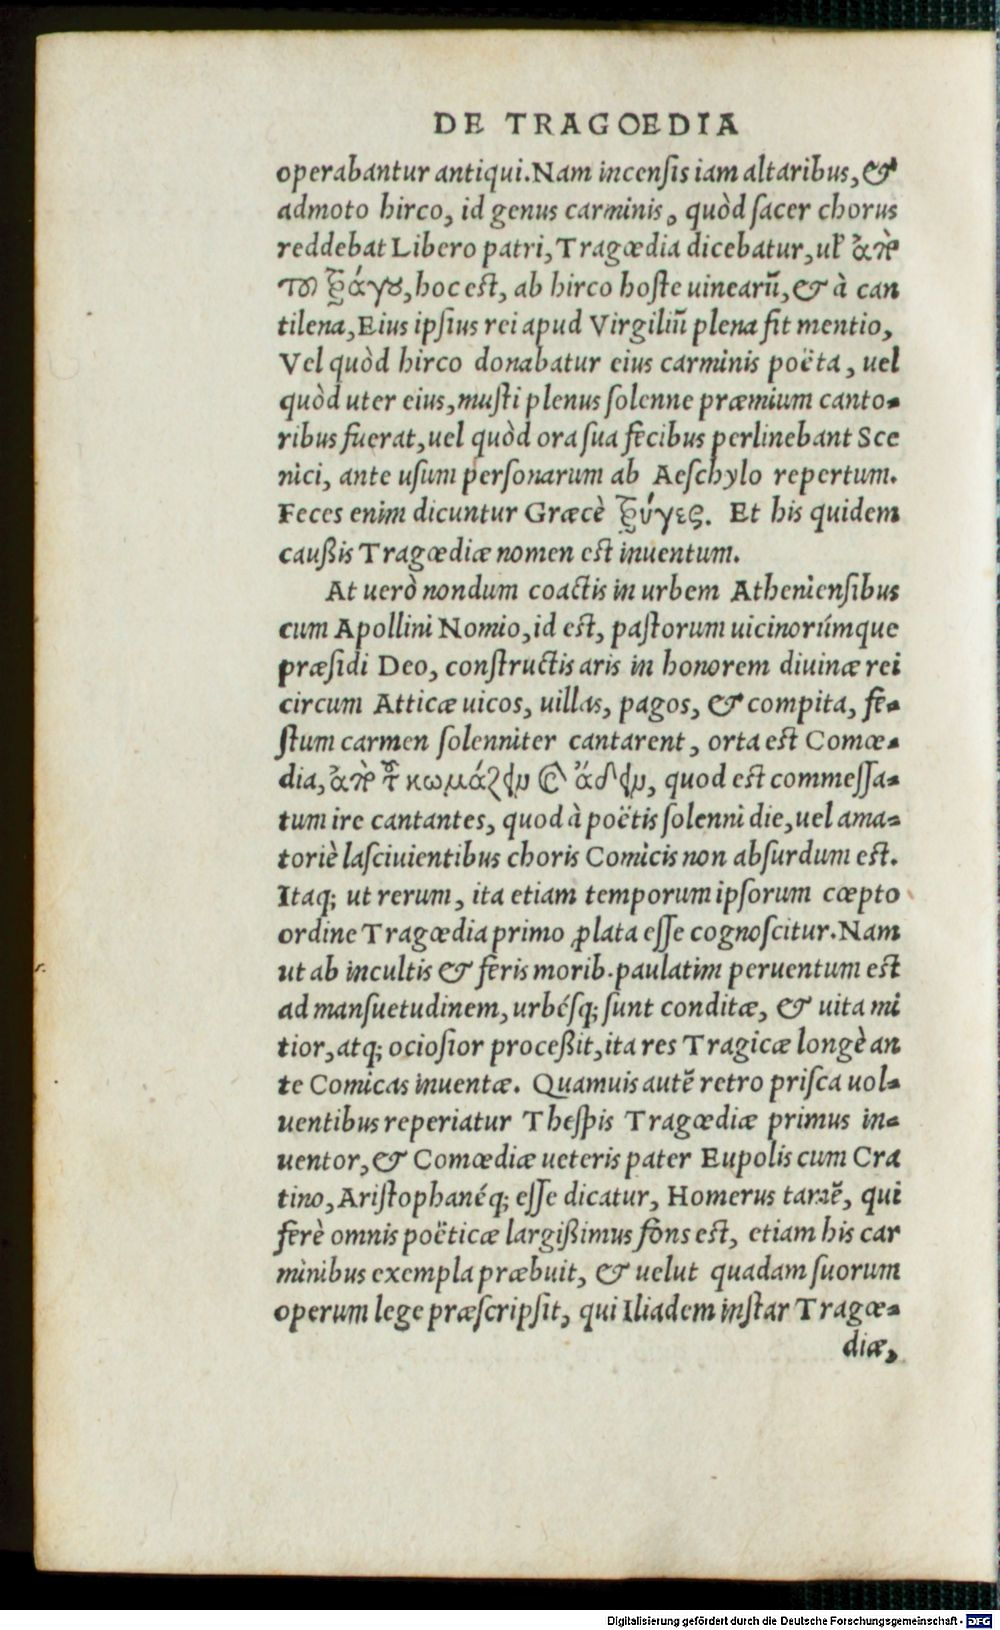 DE TRAGOEDIA
operabantur antiqui. Nam incensis iam altaribus, &
admoto hirco, id genus carminis, quòd sacer chorus
reddebat Libero patri, Tragœdia dicebatur, ul' ἀπὸ
τοῦ τράγου, hoc est, ab hirco hoste uinearũ, & à can
tilena, Eius ipsius rei apud Virgiliũ plena fit mentio,
Vel quòd hirco donabatur eius carminis poëta, uel
quòd uter eius, musti plenus solenne præmium canto-
ribus fuerat, uel quòd ora sua fecibus perlinebant Sce
nici, ante usum personarum ab Aeschylo repertum.
Feces enim dicuntur Græcè τρύγες. Et his quidem
caußis Tragœdiæ nomen est inuentum.
At uerò nondum coactis in urbem Atheniensibus
cum Apollini Nomio, id est, pastorum uicinorúmque
præsidi Deo, constructis aris in honorem diuinæ rei
circum Atticæ uicos, uillas, pagos, & compita, fe-
stum carmen solenniter cantarent, orta est Comœ-
dia, ἀπὸ τ͂ κωμάζειν καὶ ἄδειν, quod est commessa-
tum ire cantantes, quod à poëtis solenni die, uel ama-
toriè lasciuientibus choris Comicis non absurdum est.
Itaq; ut rerum, ita etiam temporum ipsorum cœpto
ordine Tragœdia primo ꝓlata esse cognoscitur. Nam
ut ab incultis & feris morib. paulatim peruentum est
ad mansuetudinem, urbésq; sunt conditæ, & uita mi
tior, atq; ociosior proceßit, ita res Tragicæ longè an
te Comicas inuentæ. Quamuis autẽ retro prisca uol-
uentibus reperiatur Thespis Tragœdiæ primus in-
uentor, & Comœdiæ ueteris pater Eupolis cum Cra
tino, Aristophanéq; esse dicatur, Homerus tamẽ, qui
ferè omnis poëticæ largißimus fons est, etiam his car
minibus exempla præbuit, & uelut quadam suorum
operum lege præscripsit, qui Iliadem instar Tragœ-
diæ,
Digitalisierung gefördert durch die Deutsche Forschungsgemeinschaft - DFG